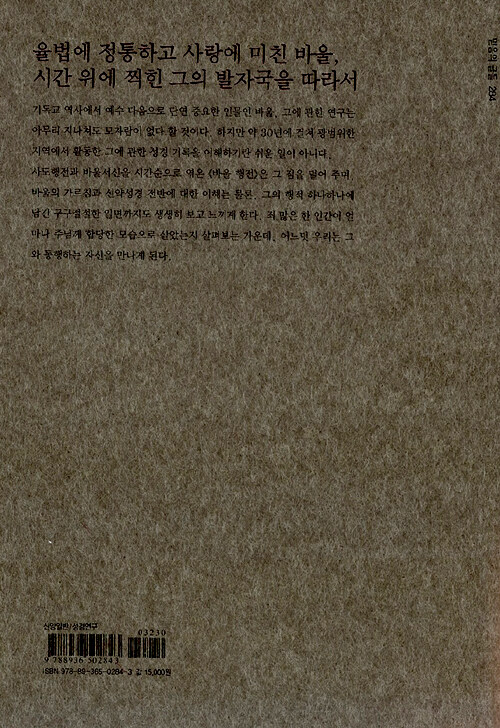 율법에 정통하고 사랑에 미친 바울,
시간 위에 찍힌 그의 발자국을 따라서
기독교 역사에서 예수 다음으로 단연 중요한 인물인 바울, 그에 관한 연구는
아무리 지나쳐도 모자람이 없다 할 것이다. 하지만 약 30년에 걸쳐 광범위한
지역에서 활동한 그에 관한 성경 기록을 이해하기란 쉬운 일이 아니다.
사도행전과 바울서신을 시간순으로 엮은 《바울 행전》은 그 짐을 덜어 주며,
바울의 가르침과 신약성경 전반에 대한 이해는 물론, 그의 행적 하나하나에
담긴 구구절절한 입면까지도 생생히 보고 느끼게 한다. 죄 많은 한 인간이 얼
마나 주님께 합당한 모습으로 살았는지 살펴보는 가운데, 어느덧 우리는 그
와 동행하는 자신을 만나게 된다.
믿음의 글들 284
신앙일반/성경연구
03230
9 788936 502843
ISBN 978-89-365-0284-3 값 15,000원